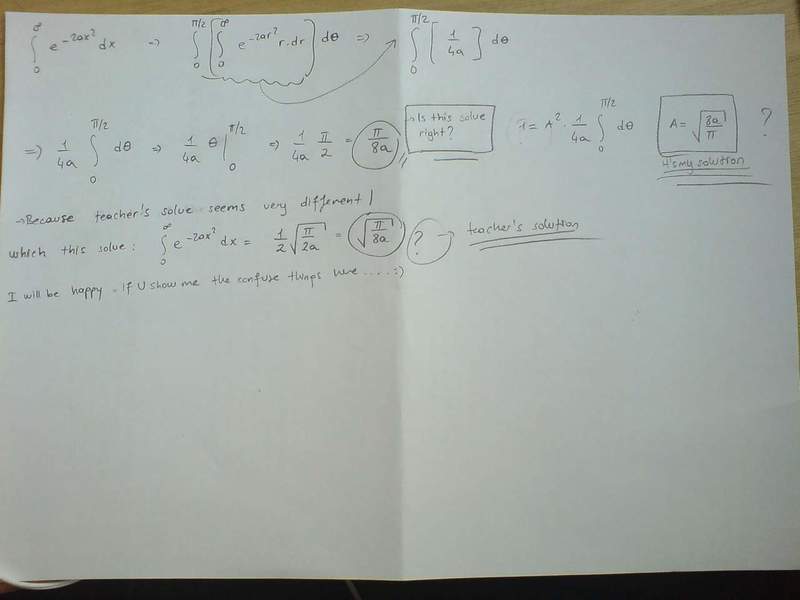 ∫₀^∞ e^{-2ax²} dx → ∫₀^{π/2} [∫₀^∞ e^{-2ar²} r.dr] dθ ⇒ ∫₀^{π/2} [1/4a] dθ
⇒ 1/4a ∫₀^{π/2} dθ ⇒ 1/4a θ|₀^{π/2} ⇒ 1/4a π/2 = π/8a
→ Is this solve
right?
1 = A² . 1/4a ∫₀^{π/2} dθ
A = √(8a/π) ?
it's my solution
→ Because teacher's solve seems very different!
which this solve: ∫₀^∞ e^{-2ax²} dx = 1/2 √(π/2a) = √(π/8a) ? → teacher's solution
I will be happy. if U show me the confuse things here....:)